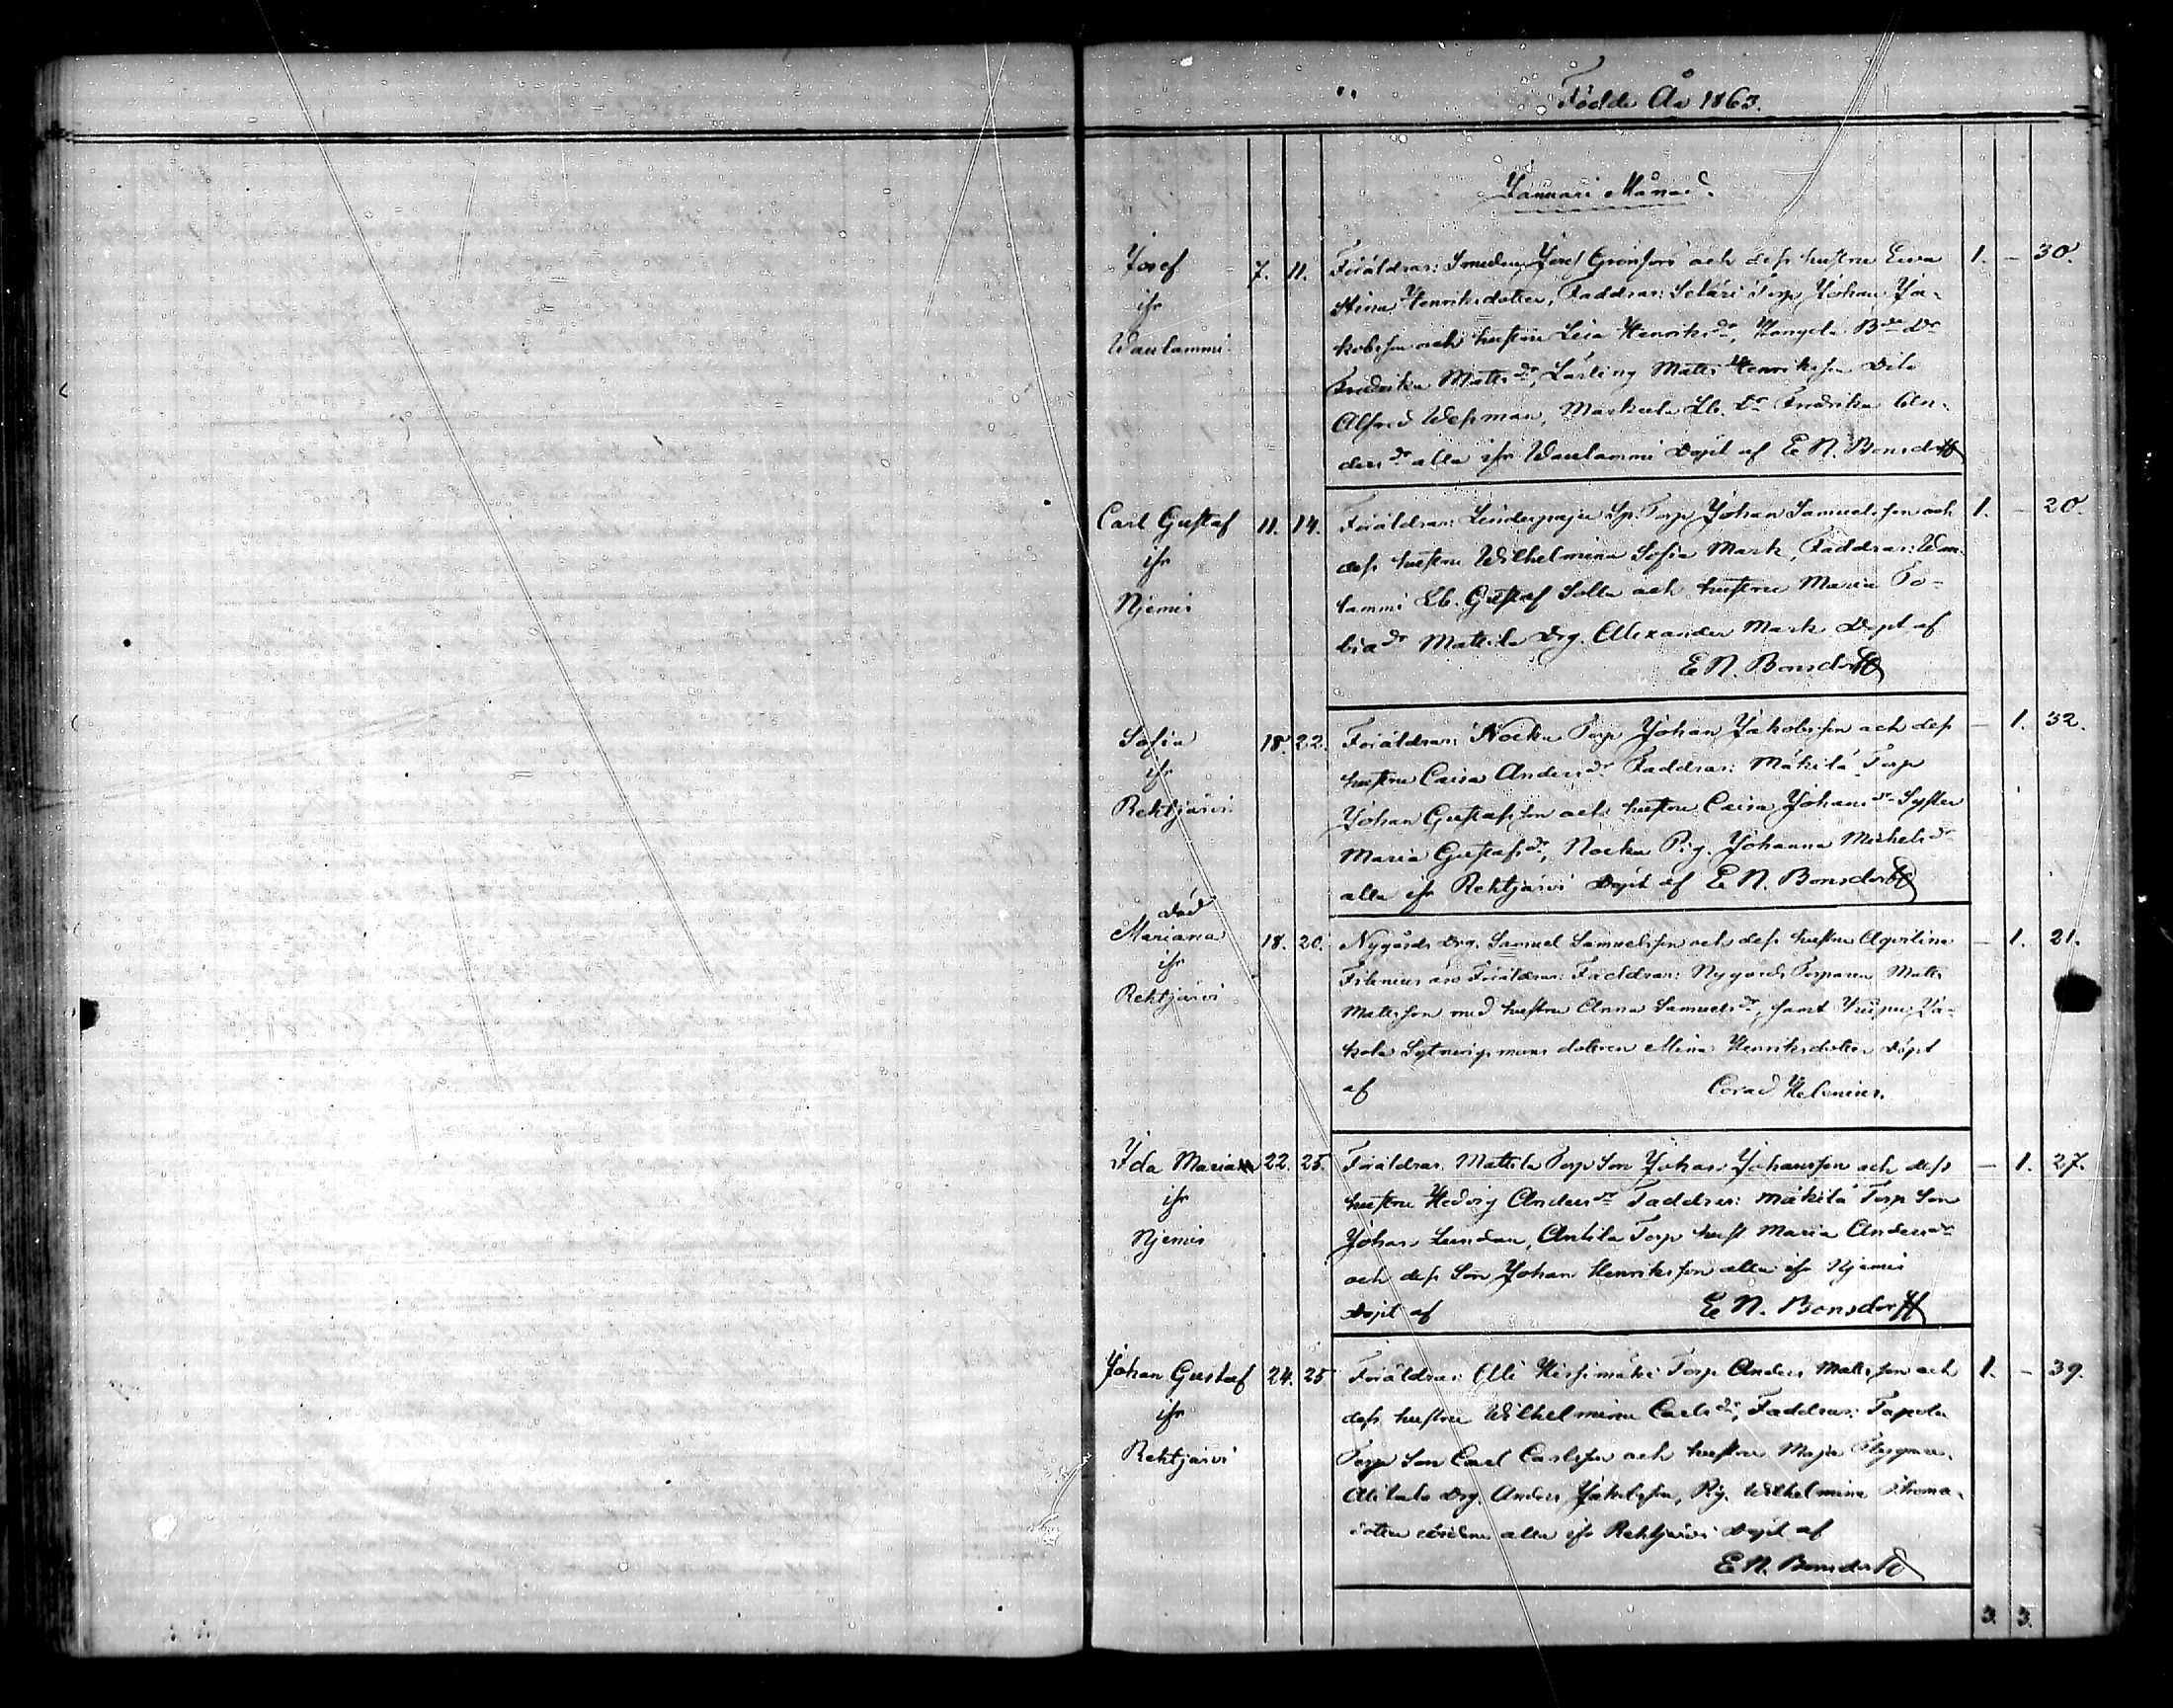 Födde År 1863.
Januari Månad.
Josef 7. 11. Föräldrar: Smeden Josef Grönfors och dess hustru Eva 1. - 30.
ifr Stina Henriksdotter, Faddrar: Seläri Torp. Johan Ja-
Waulammi kobsson och hustru Lisa Henriksdr, Bde Dr
Fredrika Mattsdr, Lärling Matts Henriksson Dito
Alfred Wessman, Markula Lb. Dr Fredrika An-
dersdr alla ifr Waulammi Döpt af E N. Bonsdorff
Carl Gustaf 11. 14. Föräldrar: Sp. Torp. Johan Samuelsson och 1. - 20.
ifr dess hustru Wilhelmina Sofia Mark, Faddrar: Wau-
Njemis lammi Lb. Gustaf Solla och hustru Maria To-
biadr Mattila Drg. Alexander Mark Döpt af
E N. Bonsdorff
Sofia 18. 22. Föräldrar: Nocka Torp Johan Jakobsson och dess - 1. 32.
ifr hustru Caisa Andersdr. Faddrar: Mäkilä Torp
Rehtijärvi Johan Gustafsson och hustru Caisa Johansdr Syster
Maria Gustafsdr, Nocka Pig. Johanna Michelsdr
alla ifr Rehtjärvi Döpt af E N. Bonsdorff
död
Mariana 18. 20. Nygårds Drg. Samuel Samuelsson och dess hustru - 1. 21.
ifr äro Föräldrar: Faddrar: Nygårds Torparen Matts
Rehtjärvi Mattsson med hustru Anna Samuelsdr, samt Ja-
kola dotteren Mina Henriksdotter Döpt
af Corad Helenius.
Ida Maria 22. 25. Föräldrar. Mattila Torp Son Johan Johansson och dess - 1. 27.
ifr hustru Hedvig Andersdr Faddrar: Mäkilä Torp Son
Njemis Johan Lundan, Antila Torp hust Maria Andersdr
och dess Son Johan Henriksson alla ifr Njemis
Döpt af E N. Bonsdorff
Johan Gustaf 24. 25 Föräldrar: Torp Anders Mattsson och 1. - 39.
ifr dess hustru Wilhelmina Carlsdr, Faddrar: Tapola
Rehtjärvi Torp Son Carl Carlsson och hustru Maja
Alitalo Drg. Anders Jakobsson, Pig. Wilhelmina Thoma-
dotter alla ifr Rehtjärvi Döpt af
E N. Bonsdorff
3. 3.